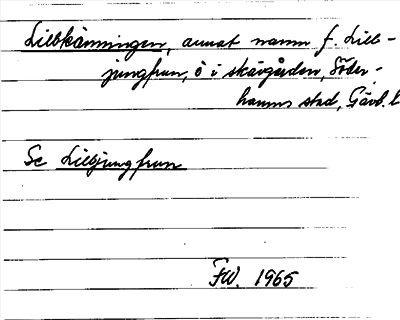 Lillkänningen, annat namn f. Lill-
jungfrun, ö i skärgården, Söder-
hamns stad, Gävl. l
Se Lilljungfrun
FW. 1965